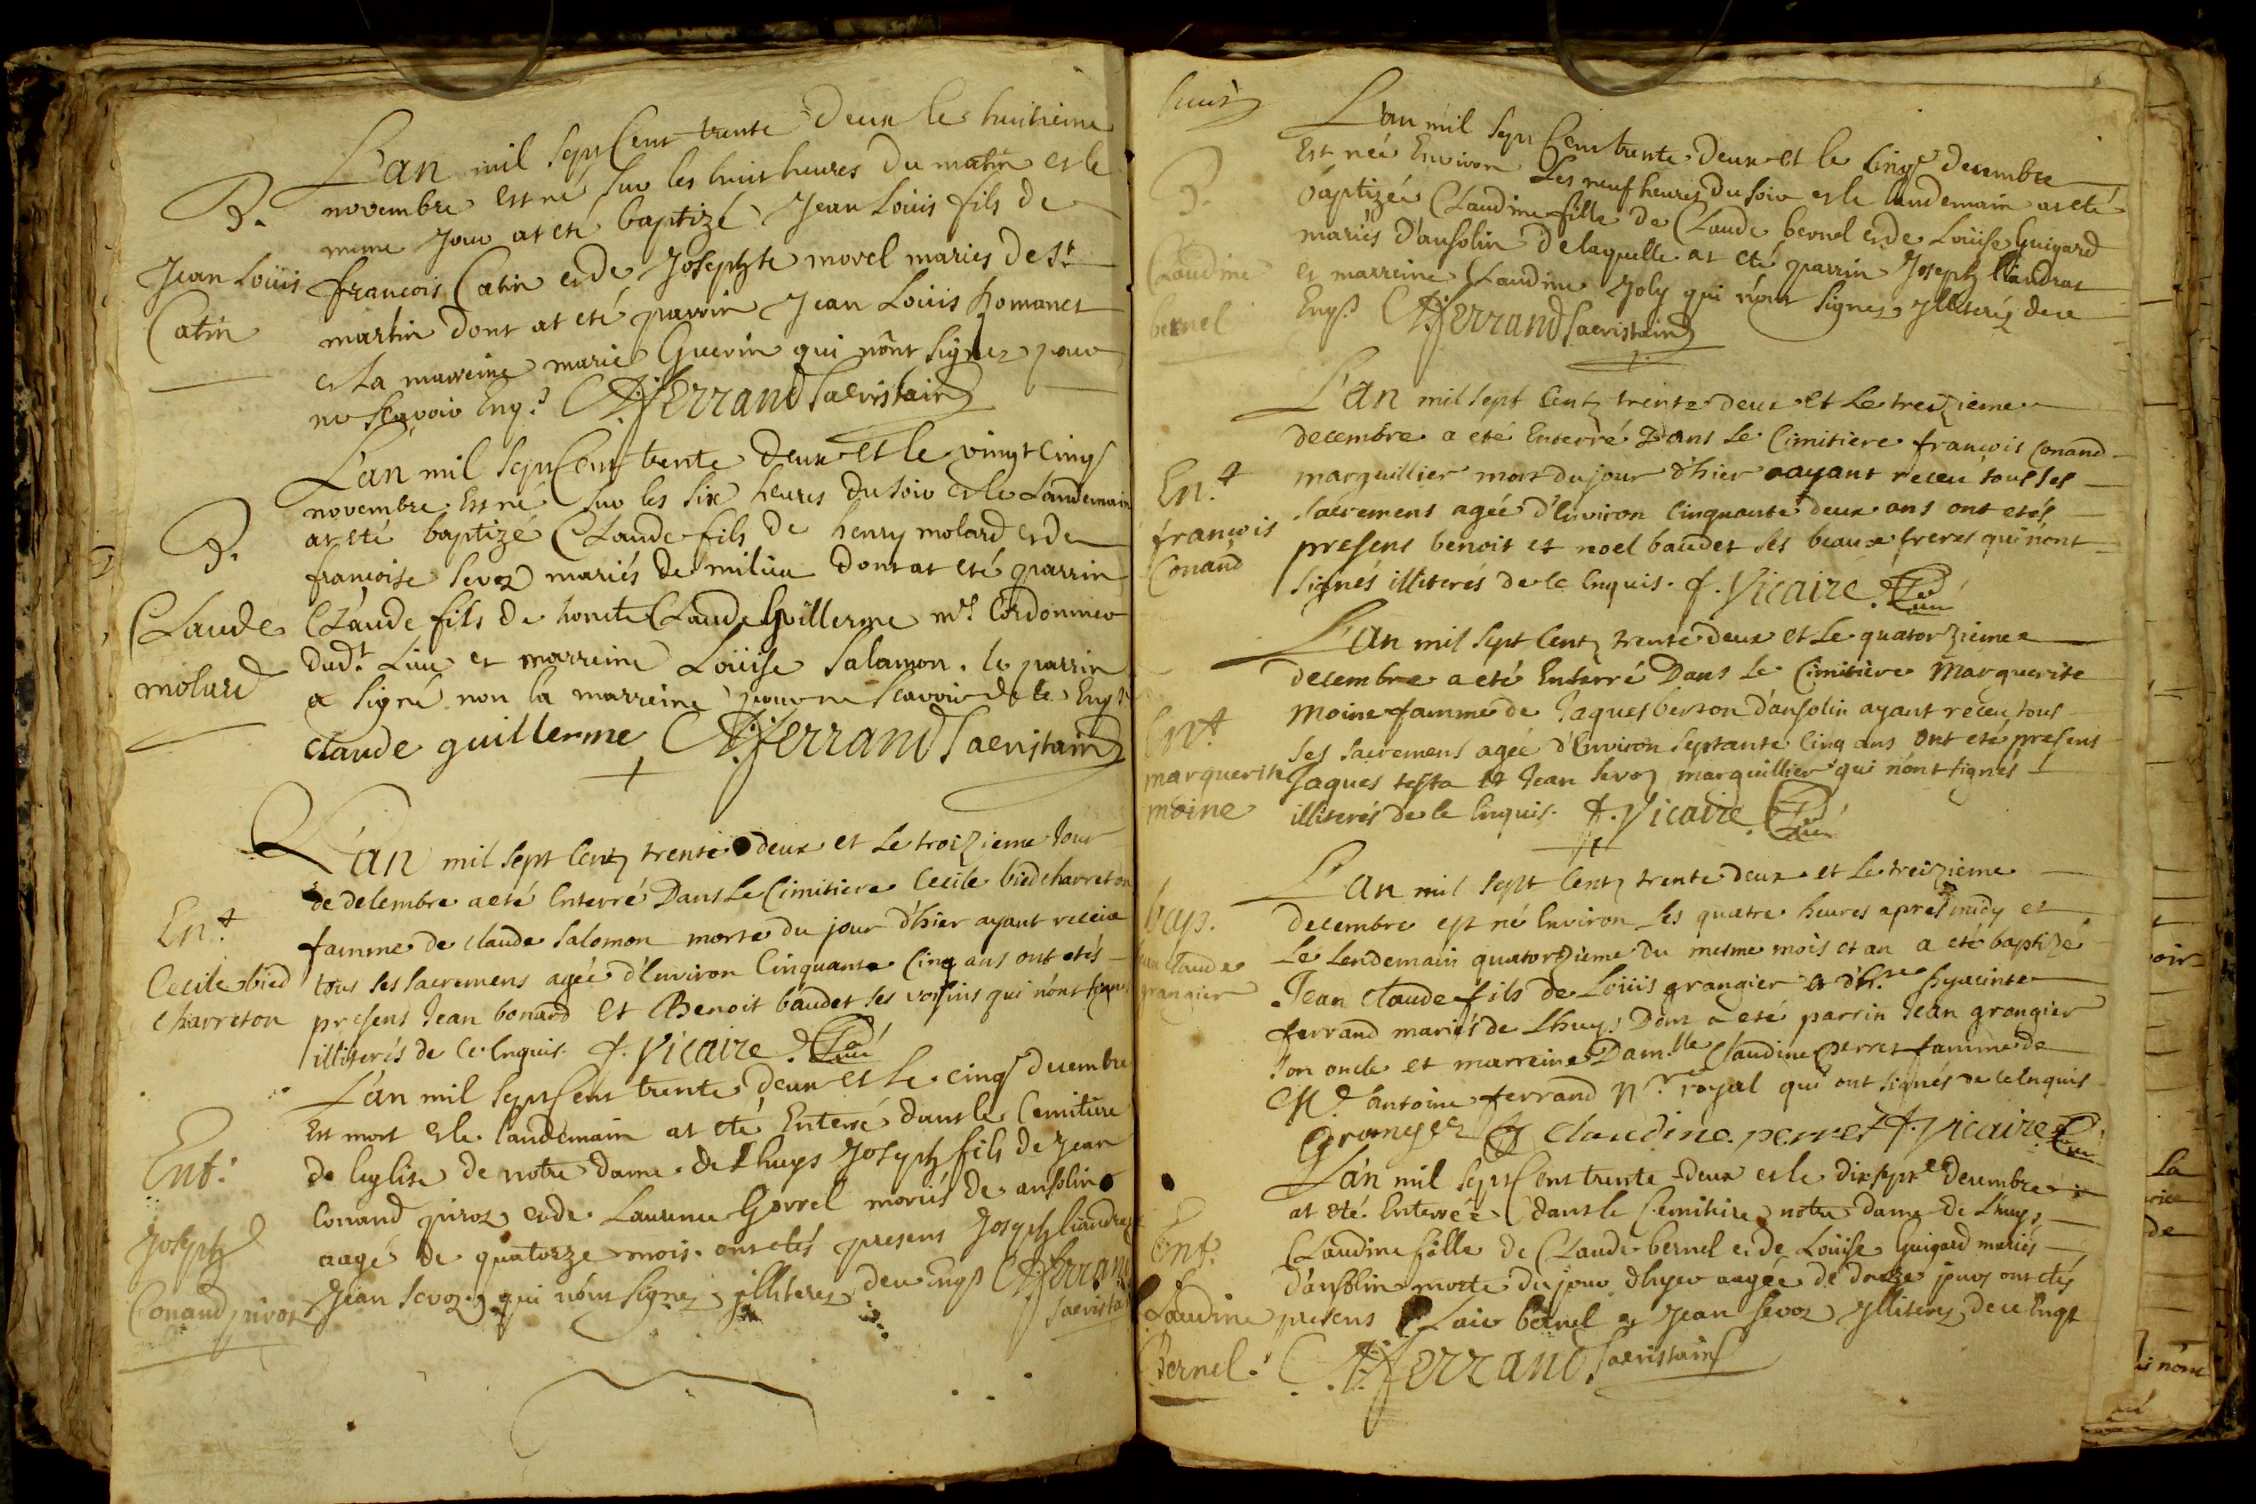 L'an mil sept Cent trente Deux le huitieme
novembre est né sur les huit heures du matin et le
B.
meme Jour at eté baptizé Jean Loüis fils de
Jean Loüis
francois Catin et de Josephte morel mariés de St
Catin
martin dont at eté parrin Jean Loüis
et la marreine marie Guerin qui n'ont signez pour
ne scavoir Enq.s A ferrand Sacristain
L'an mil sept Cent trente Deux et le vingt Cinq
novembre Est né sur les six heures du soir et le Landemain
B.
at eté baptizé CLaude fils de henry molard et de
francoise Sevoz mariés de milieu dont at eté parrin
CLaude
CLaude fils de honete CLaude Guillerme me Cordonnier
dudt Lieu et marreine Loüise Salamon. le parrin
molard
a signé non la marreine pour ne scavoir de ce Enqs
claude guillerme A ferrand Sacristain
L'an mil sept Cent trente deux et le troizieme Jour
de decembre a eté Enterré Dans Le Cimitiere Cecile biedcharreton
Ent
famme de claude Salomon morte du jour d'hier ayant receue
Cecile bied
tous ses sacremens agée d'Environ Cinquante Cinq ans ont etés
charreton
presens Jean bonard Et Benoit baudet ses voisins qui n'ont
illiterés de Ce Enquis. f. Vicaire. Curé
L'an mil sept Cent trente deux et le cinq decembre
Est mort et le landemain at eté Enterré dans le Cemitiere
Ent.
de leglise de notre dame de Lhuys Joseph fils de Jean
Joseph
Conand piroz et de Laurence Gorrel mariés de ansolin
aagé de quatorze mois. ont etés presens Joseph
Conand piroz
Jean Sevoz qui n'ont signez illiterez de ce Enqs A ferrand
Sacristain
L'an mil sept Cent trente deux et le Cinqe decembre
Est née Environ Les neuf heures du soir et le landemain at eté
B.
baptizée CLaudine fille de CLaude bernel et de Loüise Guigard
mariés d'ansolin de laquelle at eté parrin Joseph
Claudine
et marreine Claudine Joly qui n'ont signez illiterez de ce
bernel
Enqs. A ferrand Sacristain
L'an mil sept Cent trente deux et Le treizieme
decembre a eté Enterré Dans Le Cimitiere francois Conand
Ent
marguillier mort du jour d'hier ayant receu tous ses
francois
sacremens agée d'Environ Cinquante deux ans ont etés
Conand
presens benoit et noel baudet ses beaux freres qui n'ont
signés illiterés de Ce Enquis. f. Vicaire. Curé
L'an mil sept Cent trente deux et Le quatorzieme
decembre a eté Enterré Dans Le Cimitiere Marguerite
Ent
Moine famme de Jaques berson d'ansolin ayant receu tous
ses sacremens agée d'Environ septante Cinq ans Ont eté presens
marguerite
Jaques testa et Jean Sevoz marguillier qui n'ont signés
moine
illiterés de Ce Enquis. f. Vicaire. Curé
L'an mil sept Cent trente deux et Le treizieme
bap.
decembre est né Environ les quatre heures apres midy et
Jean claude
Le Lendemain quatorzieme du mesme mois et an a eté baptizé
grangier
Jean Claude fils de Loüis grangier et hyacinte
ferrand mariés de Lhuys Dont a eté parrin Jean grangier
son oncle et marreine Damlle Claudine perret famme de
Me antoine ferrand Nre royal qui ont signés de Ce Enquis
Granger claudine perret f. Vicaire Curé
L'an mil sept Cent trente deux et le dix septe decembre
at eté Enterrée dans le Cemitiere notre dame de Lhuys
Ent.
CLaudine fille de CLaude bernel et de Loüise Guigard mariés
d'ansolin morte du jour d'hyer aagée de douze jours ont etés
Claudine
presens bernel et Jean Sevoz illiterez de ce Enqs
Bernel.
A ferrand Sacristain